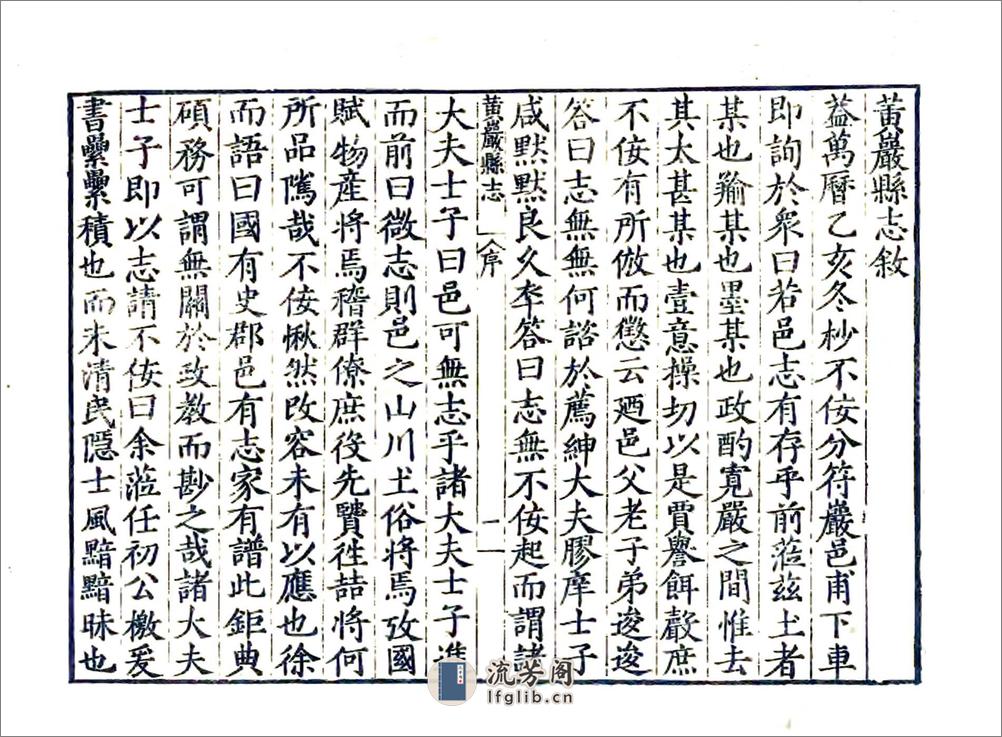 黃巖縣志敘
葢萬曆乙亥冬杪不佞分符巖邑甫下車
即詢於衆曰若邑志有存乎前蒞兹土者
某也羭某也墨某也政酌寬嚴之間惟去
其太甚某也壹意操切以是賈譽餌聲庶
不佞有所倣而懲云廼邑父老子弟逡逡
答曰志無無何諮於薦紳大夫膠庠士子
咸默默良久率答曰志無不佞起而謂諸
黃巖縣志 序 一
大夫士子曰邑可無志乎諸大夫士子進
而前曰微志則邑之山川土俗將焉攷國
賦物產將焉稽群僚庶役先贒徃喆將何
所品隲哉不佞愀然改容未有以應也徐
而語曰國有史郡邑有志家有譜此鉅典
碩務可謂無關於政教而尠之哉諸大夫
士子即以志請不佞曰余蒞任初公檄爰
書纍纍積也而未清民隱士風黯黯昧也
流芳阁
lfglib.cn